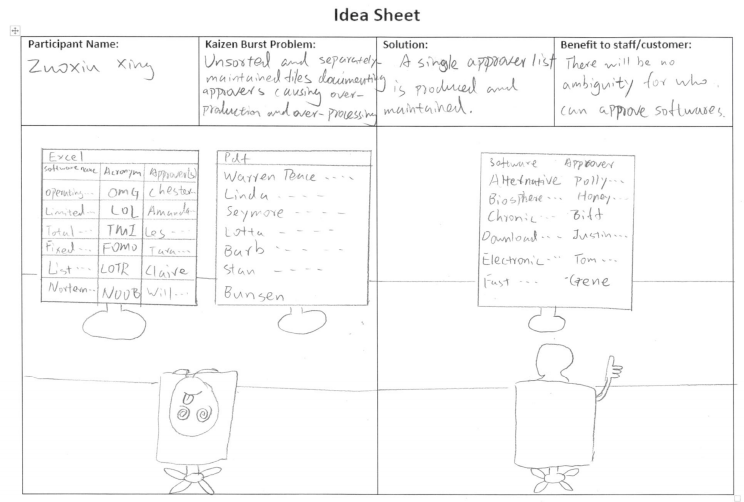 Idea Sheet
Participant Name:
Zuoxin Xing
Kaizen Burst Problem:
Unsorted and separately-
maintained files documenting
approvers causing over-
production and over-processing
Solution:
A single approver list
is produced and
maintained.
Benefit to staff/customer:
There will be no
ambiguity for who
can approve softwares.
Excel
Software name Acronym Approver(s)
Operating... OMG Chester
Limited... LOL Amanda
Total... TMI Les...
Fixed... FOMO Tara...
List... LOTR Claire
Nortem... NOOB Will...
Pdf
Warren Peace ....
Linda - - - -
Seymore - - - -
Lotta - - - -
Barb - - - -
Stan - - - -
Bunsen
Software Approver
Alternative Polly...
Biosphere... Honey...
Chronic... Biff
Download... Justin...
Electronic... Tom...
Fast ... Gene